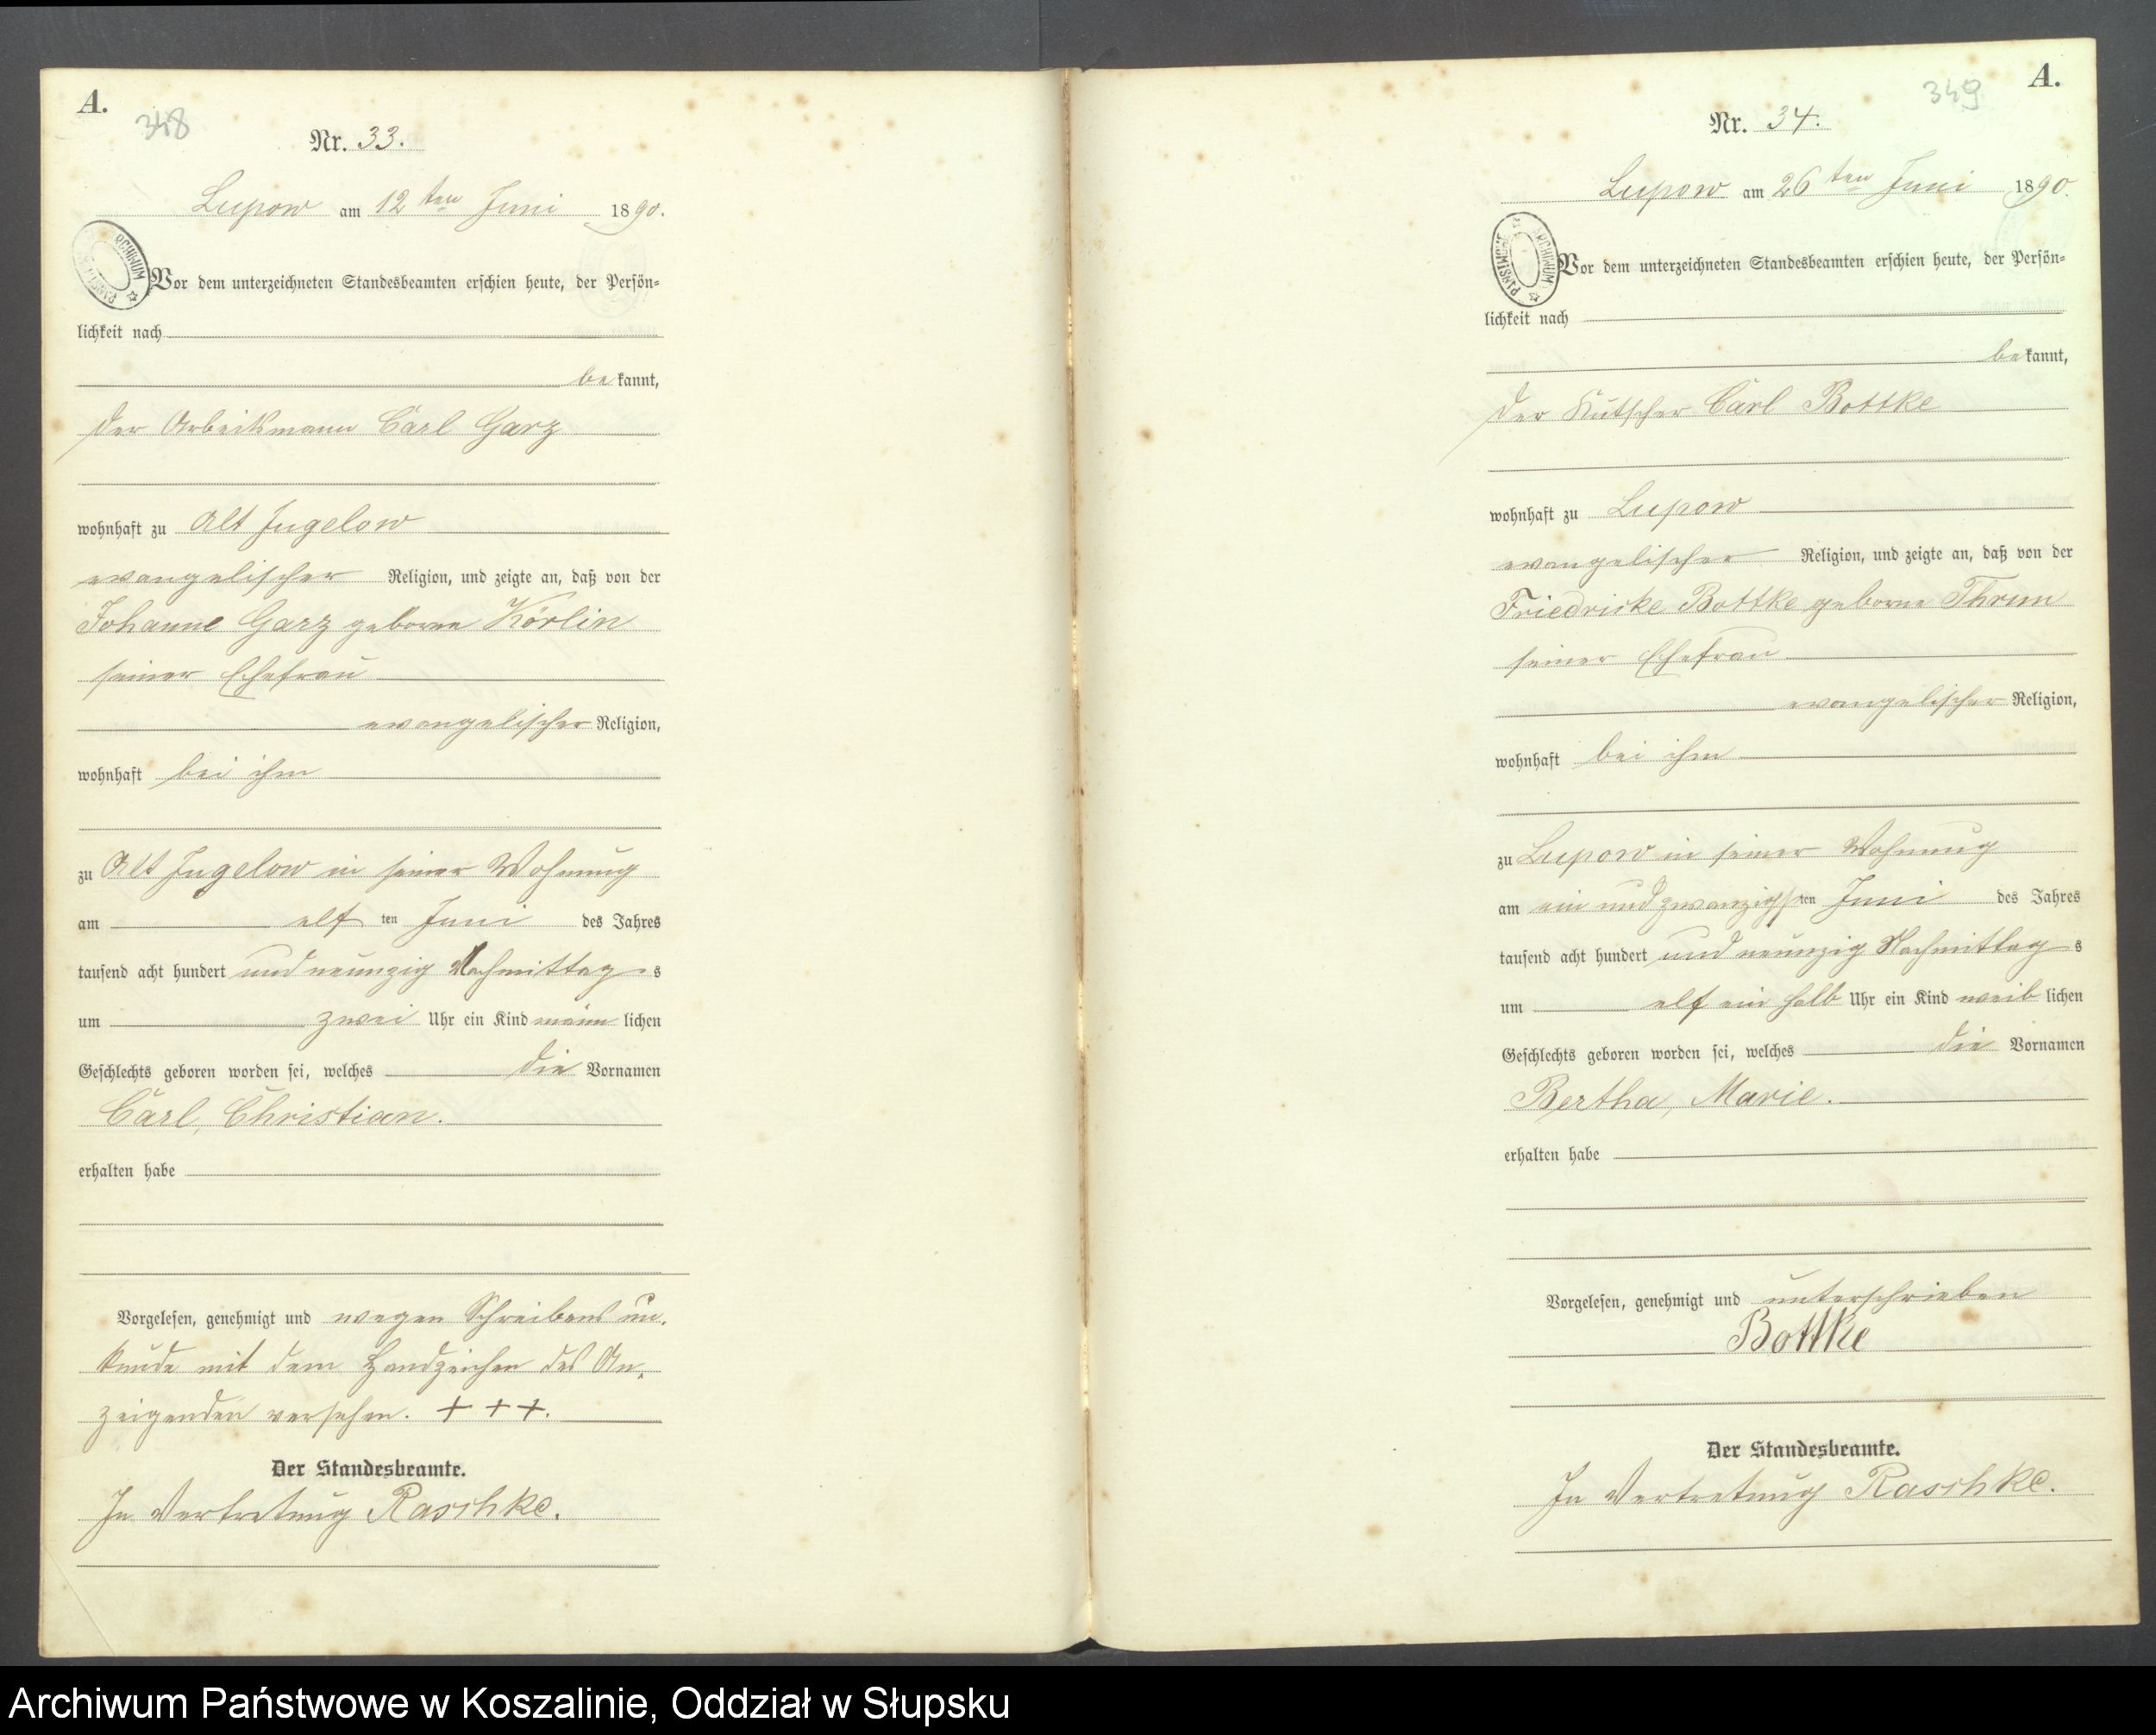 A.
348
Nr. 33.
Lupow am 12ten Juni 1890.
Vor dem unterzeichneten Standesbeamten erschien heute, der Persön-
lichkeit nach
bekannt,
der Arbeitsmann Carl Garz
wohnhaft zu Alt Jugelow
evangelischer Religion, und zeigte an, daß von der
Johanne Garz geborne Körlin
seiner Ehefrau
evangelischer Religion,
wohnhaft bei ihm
zu Alt Jugelow in seiner Wohnung
am elf ten Juni des Jahres
tausend acht hundert und neunzig Nachmittags
um zwei Uhr ein Kind männlichen
Geschlechts geboren worden sei, welches die Vornamen
Carl, Christian.
erhalten habe
Vorgelesen, genehmigt und wegen Schreibens un-
kunde mit dem Handzeichen des An-
zeigenden versehen. + + +.
Der Standesbeamte.
In Vertretung Raschke.
A.
349
Nr. 34.
Lupow am 26ten Juni 1890.
ARCHIWUM PAŃSTWOWE
Vor dem unterzeichneten Standesbeamten erschien heute, der Persön-
lichkeit nach
bekannt,
der Kutscher Carl Bottke
wohnhaft zu Lupow
evangelischer Religion, und zeigte an, daß von der
Friedricke Bottke geborne Thrun
seiner Ehefrau
evangelischer Religion,
wohnhaft bei ihm
zu Lupow in seiner Wohnung
am ein und zwanzigsten Juni des Jahres
tausend acht hundert und neunzig Nachmittags
um elf ein halb Uhr ein Kind weiblichen
Geschlechts geboren worden sei, welches die Vornamen
Bertha, Marie.
erhalten habe
Vorgelesen, genehmigt und unterschrieben
Bottke
Der Standesbeamte.
In Vertretung Raschke.
Archiwum Państwowe w Koszalinie, Oddział w Słupsku